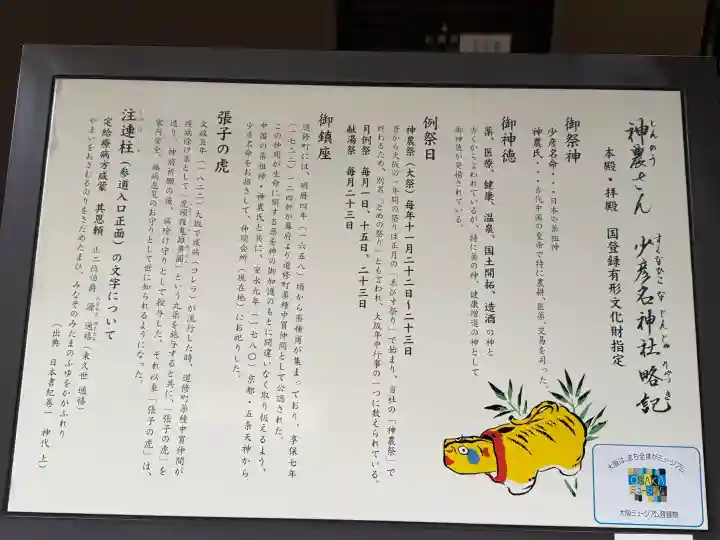 しんのう
神農さん
すくなひこなじんじゃりゃっき
少彦名神社略記
本殿・拝殿 国登録有形文化財指定
御祭神
少彦名命・・・日本の薬祖神
神農氏・・・古代中国の皇帝で特に農耕、医薬、交易を司った。
御神徳
薬、医療、健康、温泉、国土開拓、造酒の神と
古くからいわれているが、特に薬の神、健康増進の神として
御神徳が発揚されている。
例祭日
神農祭(大祭)毎年十一月二十二日~二十三日
昔から大阪の一年間の祭りは正月の「ゑびす祭り」で始まり、当社の「神農祭」で
終わるため、別名「とめの祭り」ともいわれ、大阪年中行事の一つに数えられている。
月例祭 毎月一日、十五日、二十三日
献湯祭 毎月二十三日
御鎮座
道修町は、明暦四年(一六五八)頃から薬種商が集まっており、享保七年
(一七二二)一二四軒が幕府より道修町薬種中買仲間として公認された。
この仲間が生命に関する薬を神の御加護のもとに間違いなく取り扱えるよう、
中国の薬祖神・神農氏と共に、安永九年(一七八〇)京都・五条天神から
少彦名命をお招きして、仲間会所(現在地)にお祀りした。
張子の虎
文政五年(一八二二)大坂で疫病(コレラ)が流行した時、道修町薬種中買仲間が
疫病除け薬として「虎頭殺鬼雄黄圓」という丸薬を施与すると共に、「張子の虎」を
造り、神前祈願の後、病除け守りとして授与した。それ以来「張子の虎」は、
家内安全、無病息災のお守りとして世に知られるようになった。
注連柱(参道入口正面)の文字について
定給療病方咸蒙 其恩頼 正二位伯爵 源 通禧(東久世通禧)
やまいをおさむるのりをさだめたまひ、みなそのみたまのふゆをかがふれり
(出典 日本書紀巻一 神代 上)
大阪は、まち全体がミュージアム
OSAKA
ミュージアム
大阪ミュージアム登録物